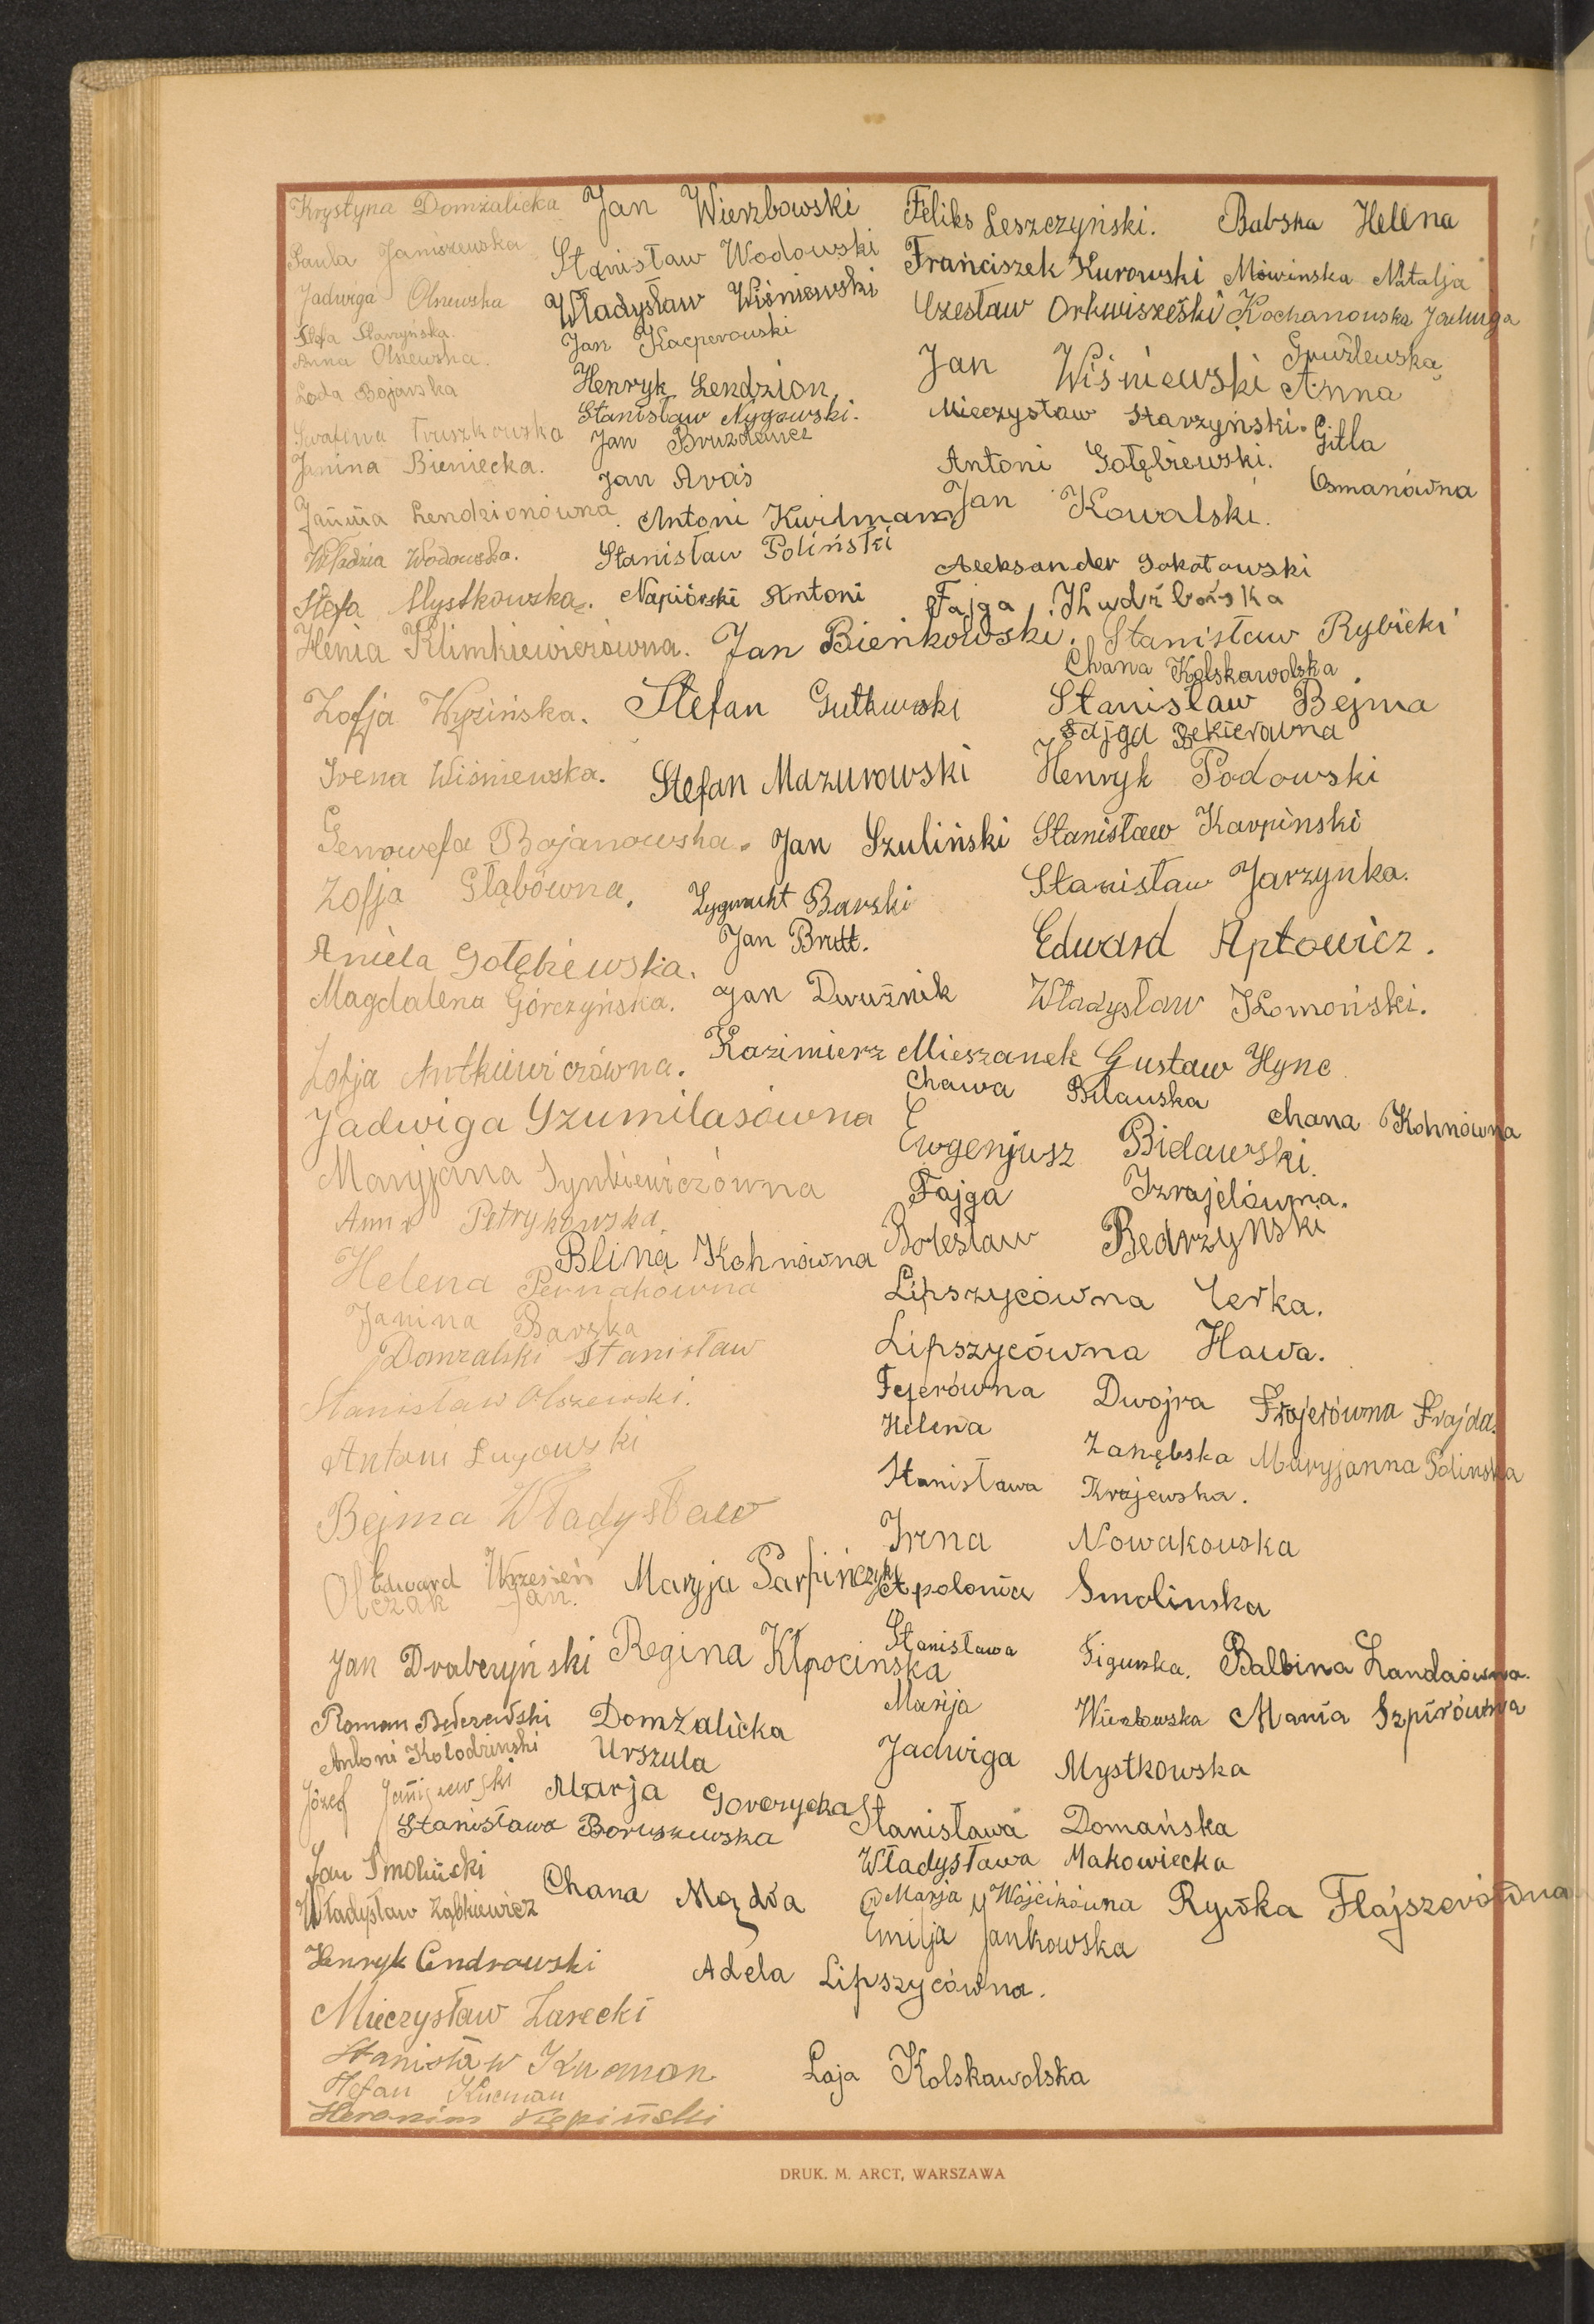 Krystyna Domżalicka
Paula Janiszewska
Jadwiga Olszewska
Stefa Starzyńska.
Anna Olszewska.
Loda Bojarska
Serafina Truszkowska
Janina Bieniecka.
Janina Lendzionówna.
Władzia Wodowska.
Stefa Mystkowska.
Henia Klimkiewiczówna.
Zofja Wyzińska.
Irena Wiśniewska.
Genowefa Bojanowska.
Zofja Głąbówna.
Aniela Gołębiewska.
Magdalena Górczyńska.
Zofja Antkiewiczówna.
Jadwiga Szumilasówna
Maryjana Synkiewiczówna
Anna Petrykowska.
Helena Pernakówna
Janina Barska
Domzalski Stanisław
Stanisław Olszewski.
Antoni Ługowski
Bejma Władysław
Edward Wrzesień
Olczak Jan.
Jan Drabczyński
Roman Bederewski
Antoni Kolodzinski
Józef Janiszewski
Stanisława Boruszewska
Jan Smoliński
Władysław Ząbkiewicz
Henryk Cendrowski
Mieczysław Zarecki
Stanisław Kucman
Stefan Kucman
Heronim Kępiński
Jan Wierzbowski
Stanisław Wodowski
Władysław Wiśniewski
Jan Kacperowski
Henryk Lendzion.
Stanisław Nygowski.
Jan Bruzdewicz
Jan Araś
Antoni Kwidman
Stanisław Poliński
Napiórski Antoni
Jan Bieńkowski.
Stefan Gutkowski
Stefan Mazurowski
Jan Szuliński
Zygmunt Barski
Jan Brett.
Jan Dwużnik
Kazimierz Mieszanek
Blina Kohnówna
Maryja Parpińczyk
Regina Kłpocinska
Domżalicka
Urszula
Marja Goworycka
Chana Mądra
Adela Lipszycówna.
Laja Kolskawolska
Feliks Leszczyński.
Franciszek Kurowski
Czesław Orkwiszeski
Jan Wiśniewski
Mieczysław Starzyński.
Antoni Gołębiewski.
Jan Kowalski.
Aleksander Sokołowski
Fajga
Stanisław Rybicki
Chana Kolskawolska
Stanisław Bejma
Fajga Bekierówna
Henryk Podowski
Stanisław Karpinski
Stanisław Jarzynka.
Edward Aptowicz.
Władysław Komoński.
Gustaw Hync
Chawa Bilauska
Chana Kohnówna
Ewgenjusz Bidawski.
Fajga Izrajelówna.
Bolesław Bedrzynski
Lipszycówna Cerka.
Lipszycówna Hawa.
Fejerówna Dwojra
Frajerówna Frajda.
Helena Zarębska
Maryjanna Polinska
Stanisława Krajewska.
Irna Nowakowska
Apolonia Smolinska
Stanisława Figurska.
Balbina Landaówna.
Marija Wierzbowska
Mania Szpirówna
Jadwiga Mystkowska
Stanisława Domańska
Władysława Makowiecka
Marja Wójcikówna
Rywka Flajszerówna
Emilja Jankowska
Babska Helena
Mówinska Natalja
Kochanowska Jadwiga
Gruźlewska
Anna
Gitla
Osmanówna
DRUK. M. ARCT, WARSZAWA